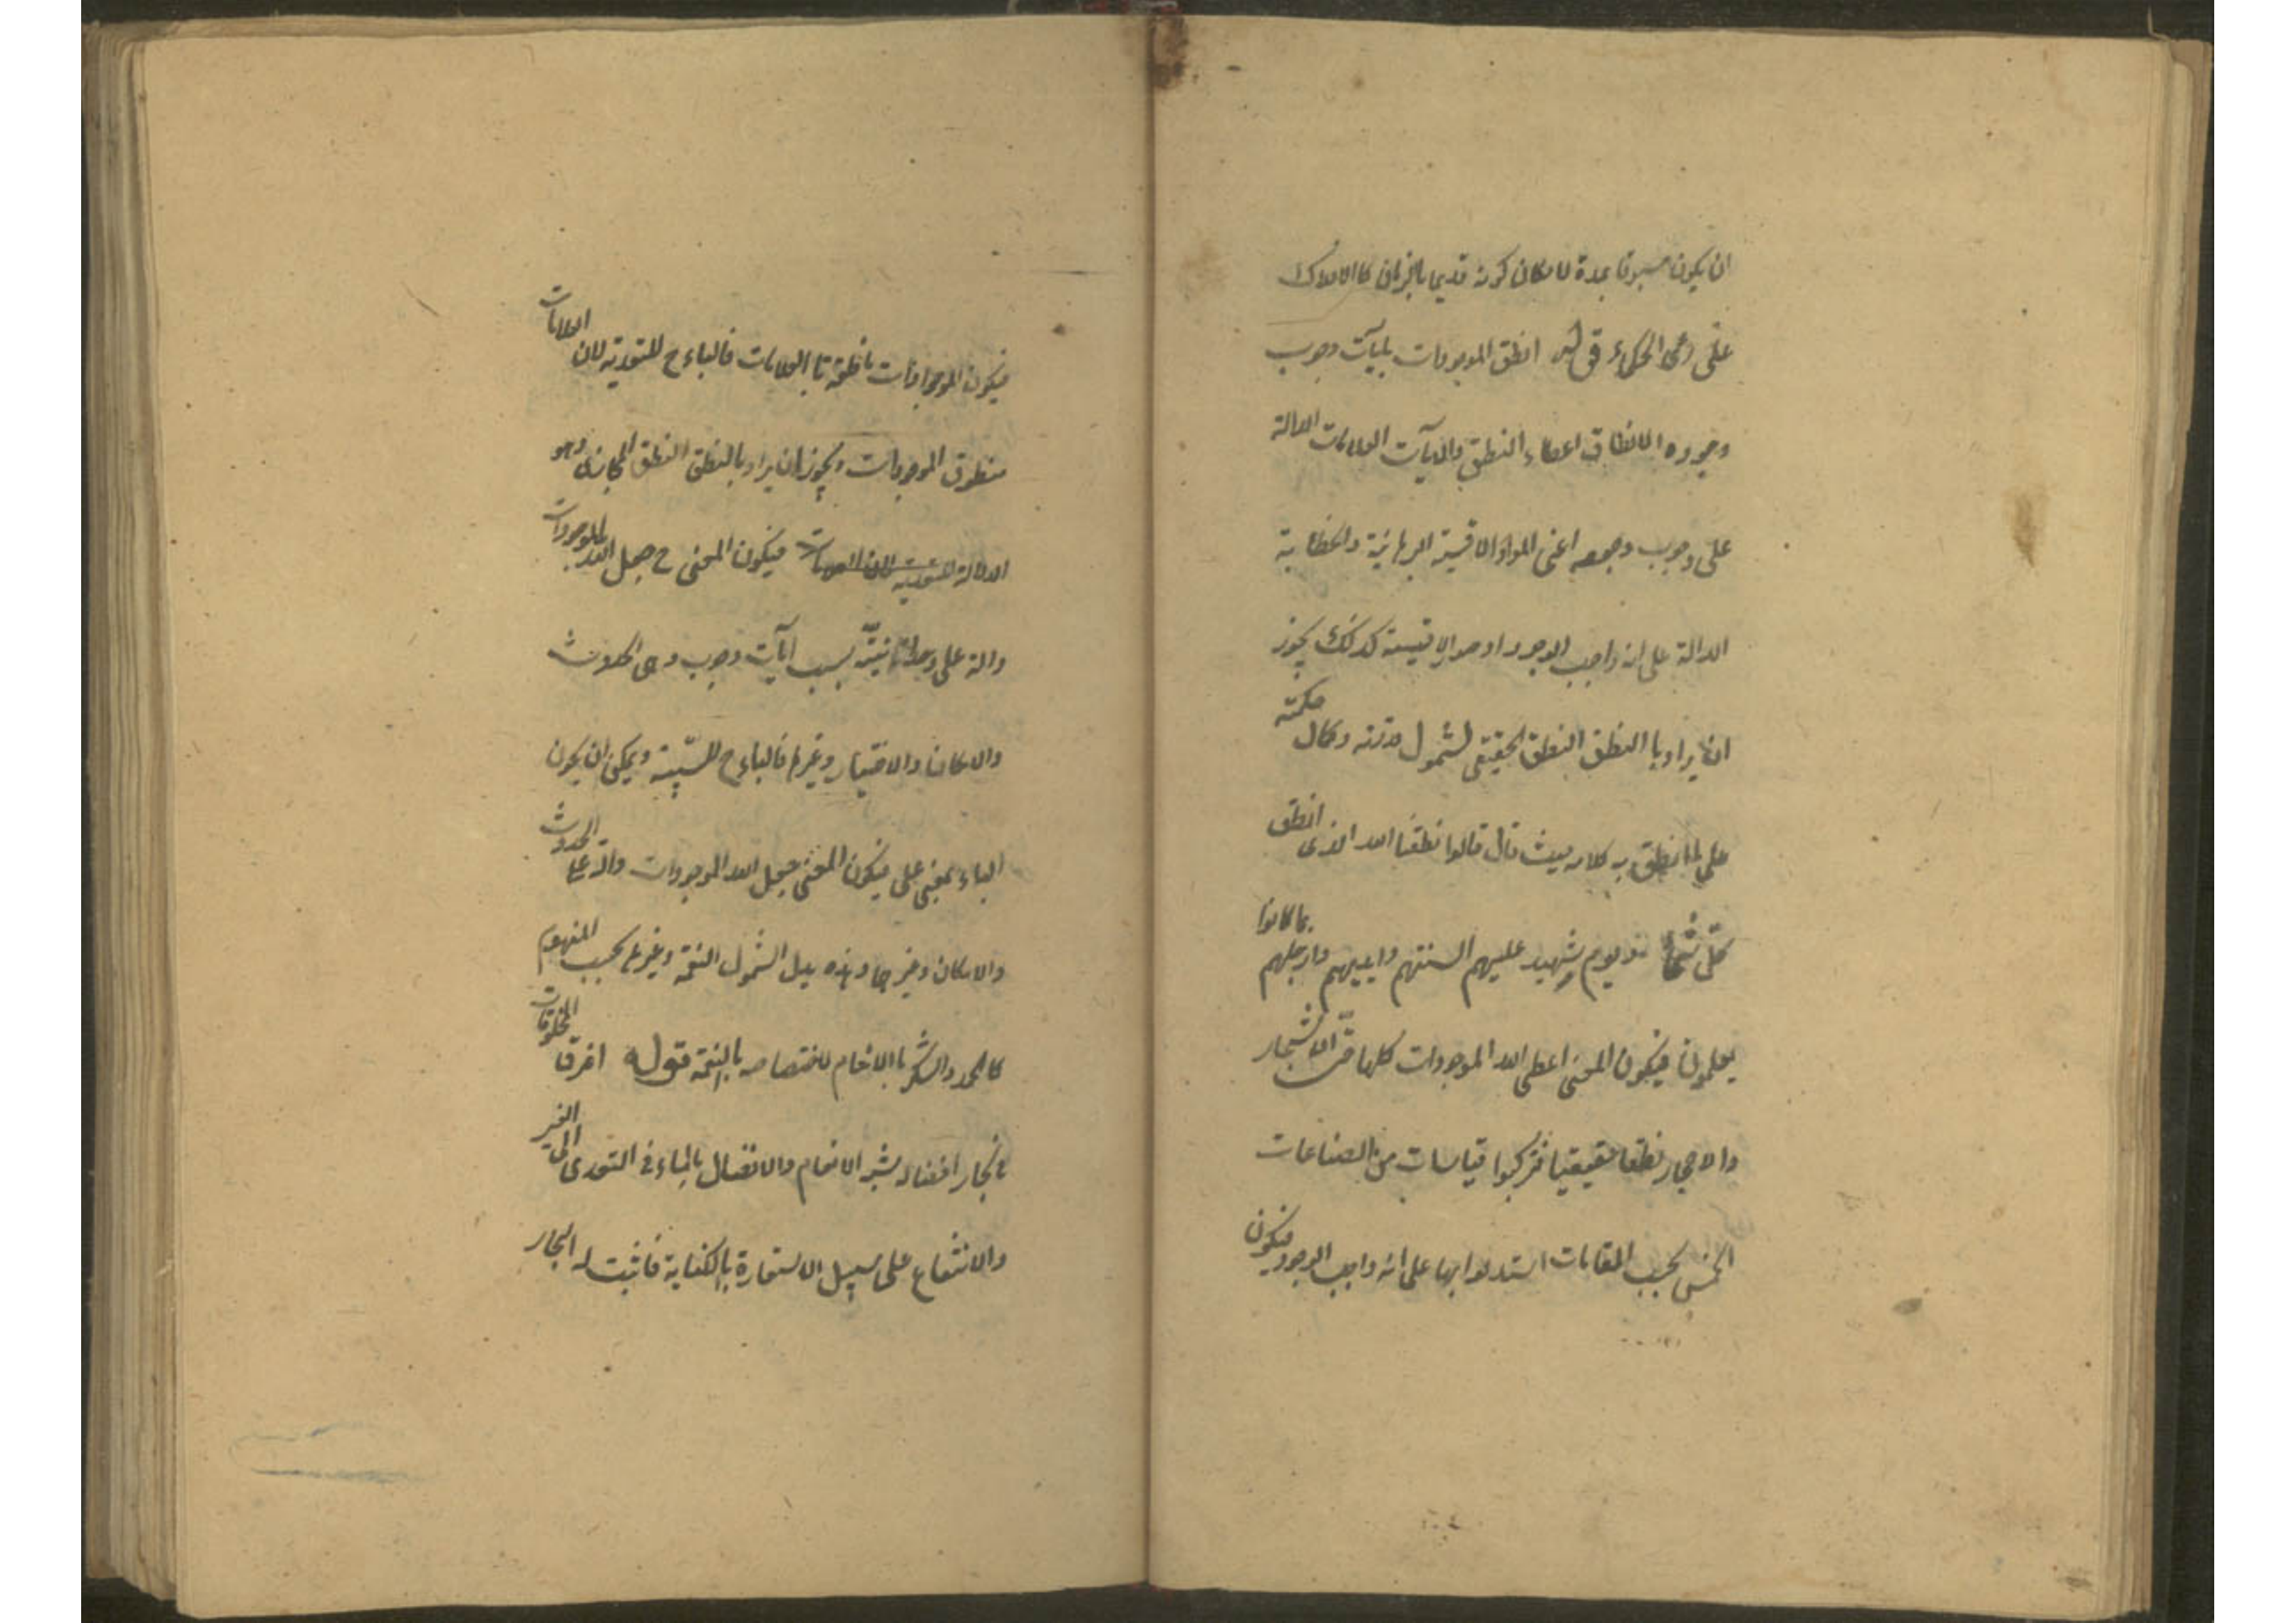 ان يكون مسبوقا بمدة لامكان كونه قديما بالزمان كالافلاك
على راى الحكماء قوله انطق الموجودات بآيات وجوب
وجوده الانطاق اعطاء النطق والآيات العلامات الدالة
على وجوب وجوده اعنى المواد الاقيسة البرهانية والخطابية
الدالة على انه واجب الوجود او صور الاقيسة كذلك يجوز
ان يراد باالنطق النطق الحقيقى لشمول قدرته وكمال حكمته
على ما نطق به كلامه حيث قال قالوا انطقنا الله الذى انطق
كل شئ ويوم تشهد عليهم السنتهم وايديهم وارجلهم بما كانوا
يعلمون فيكون المعنى اعطى الله الموجودات كلها حتى الاشجار
والاحجار نطقا حقيقيا فتركبوا قياسات من الصناعات
الخمس بحسب المقامات استدلوا بها على انه واجب الوجود فيكون
فيكون الموجودات ناطقة بتا العلامات فالباء ح للتعدية لان العلامات
منطوق الموجودات ويجوز ان يراد بالنطق النطق المجازى وهو
الدلالة للتعدية لان العلامات فيكون المعنى ح جعل الله الموجودات
دالة على وحدانيته بسبب آيات وجوب وهى الحدوث
والامكان والاختيار وغيرها فالباء ح للسببية ويمكن ان يكون
الباء بمعنى على فيكون المعنى جعل الله الموجودات دالة على الحدوث
والامكان وغيرها وهذه بدل الشمول النعمة وغيرها بحسب المفهوم
كالحمد والشكر باالانعام لاختصاصه بالنعمة قوله اغرق المخلوقات
فى بحار افضاله شبه الانعام والافضال بالماء فى التعدى الى الغير
والانتفاع على سبيل الاستعارة بالكناية فاثبت له البحار